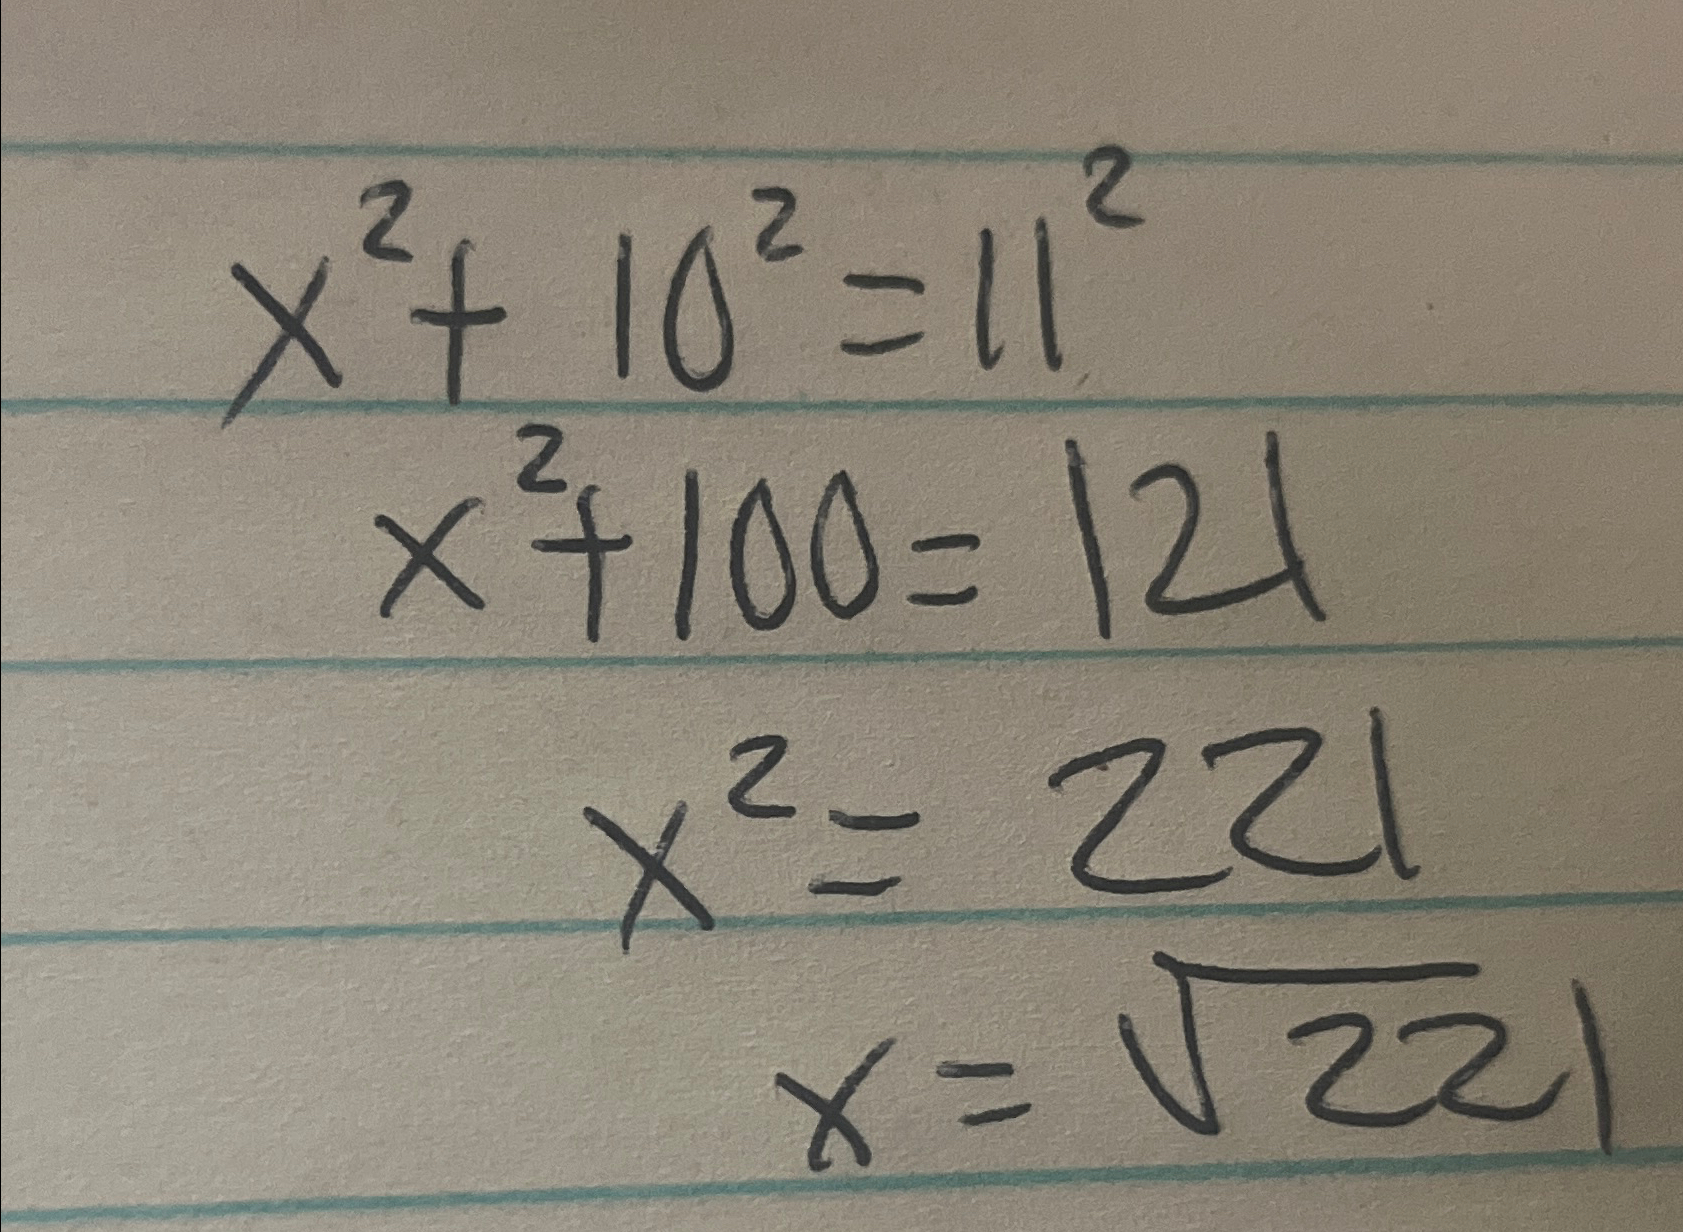 x² + 10² = 11²
x² + 100 = 121
x² = 221
x = √221